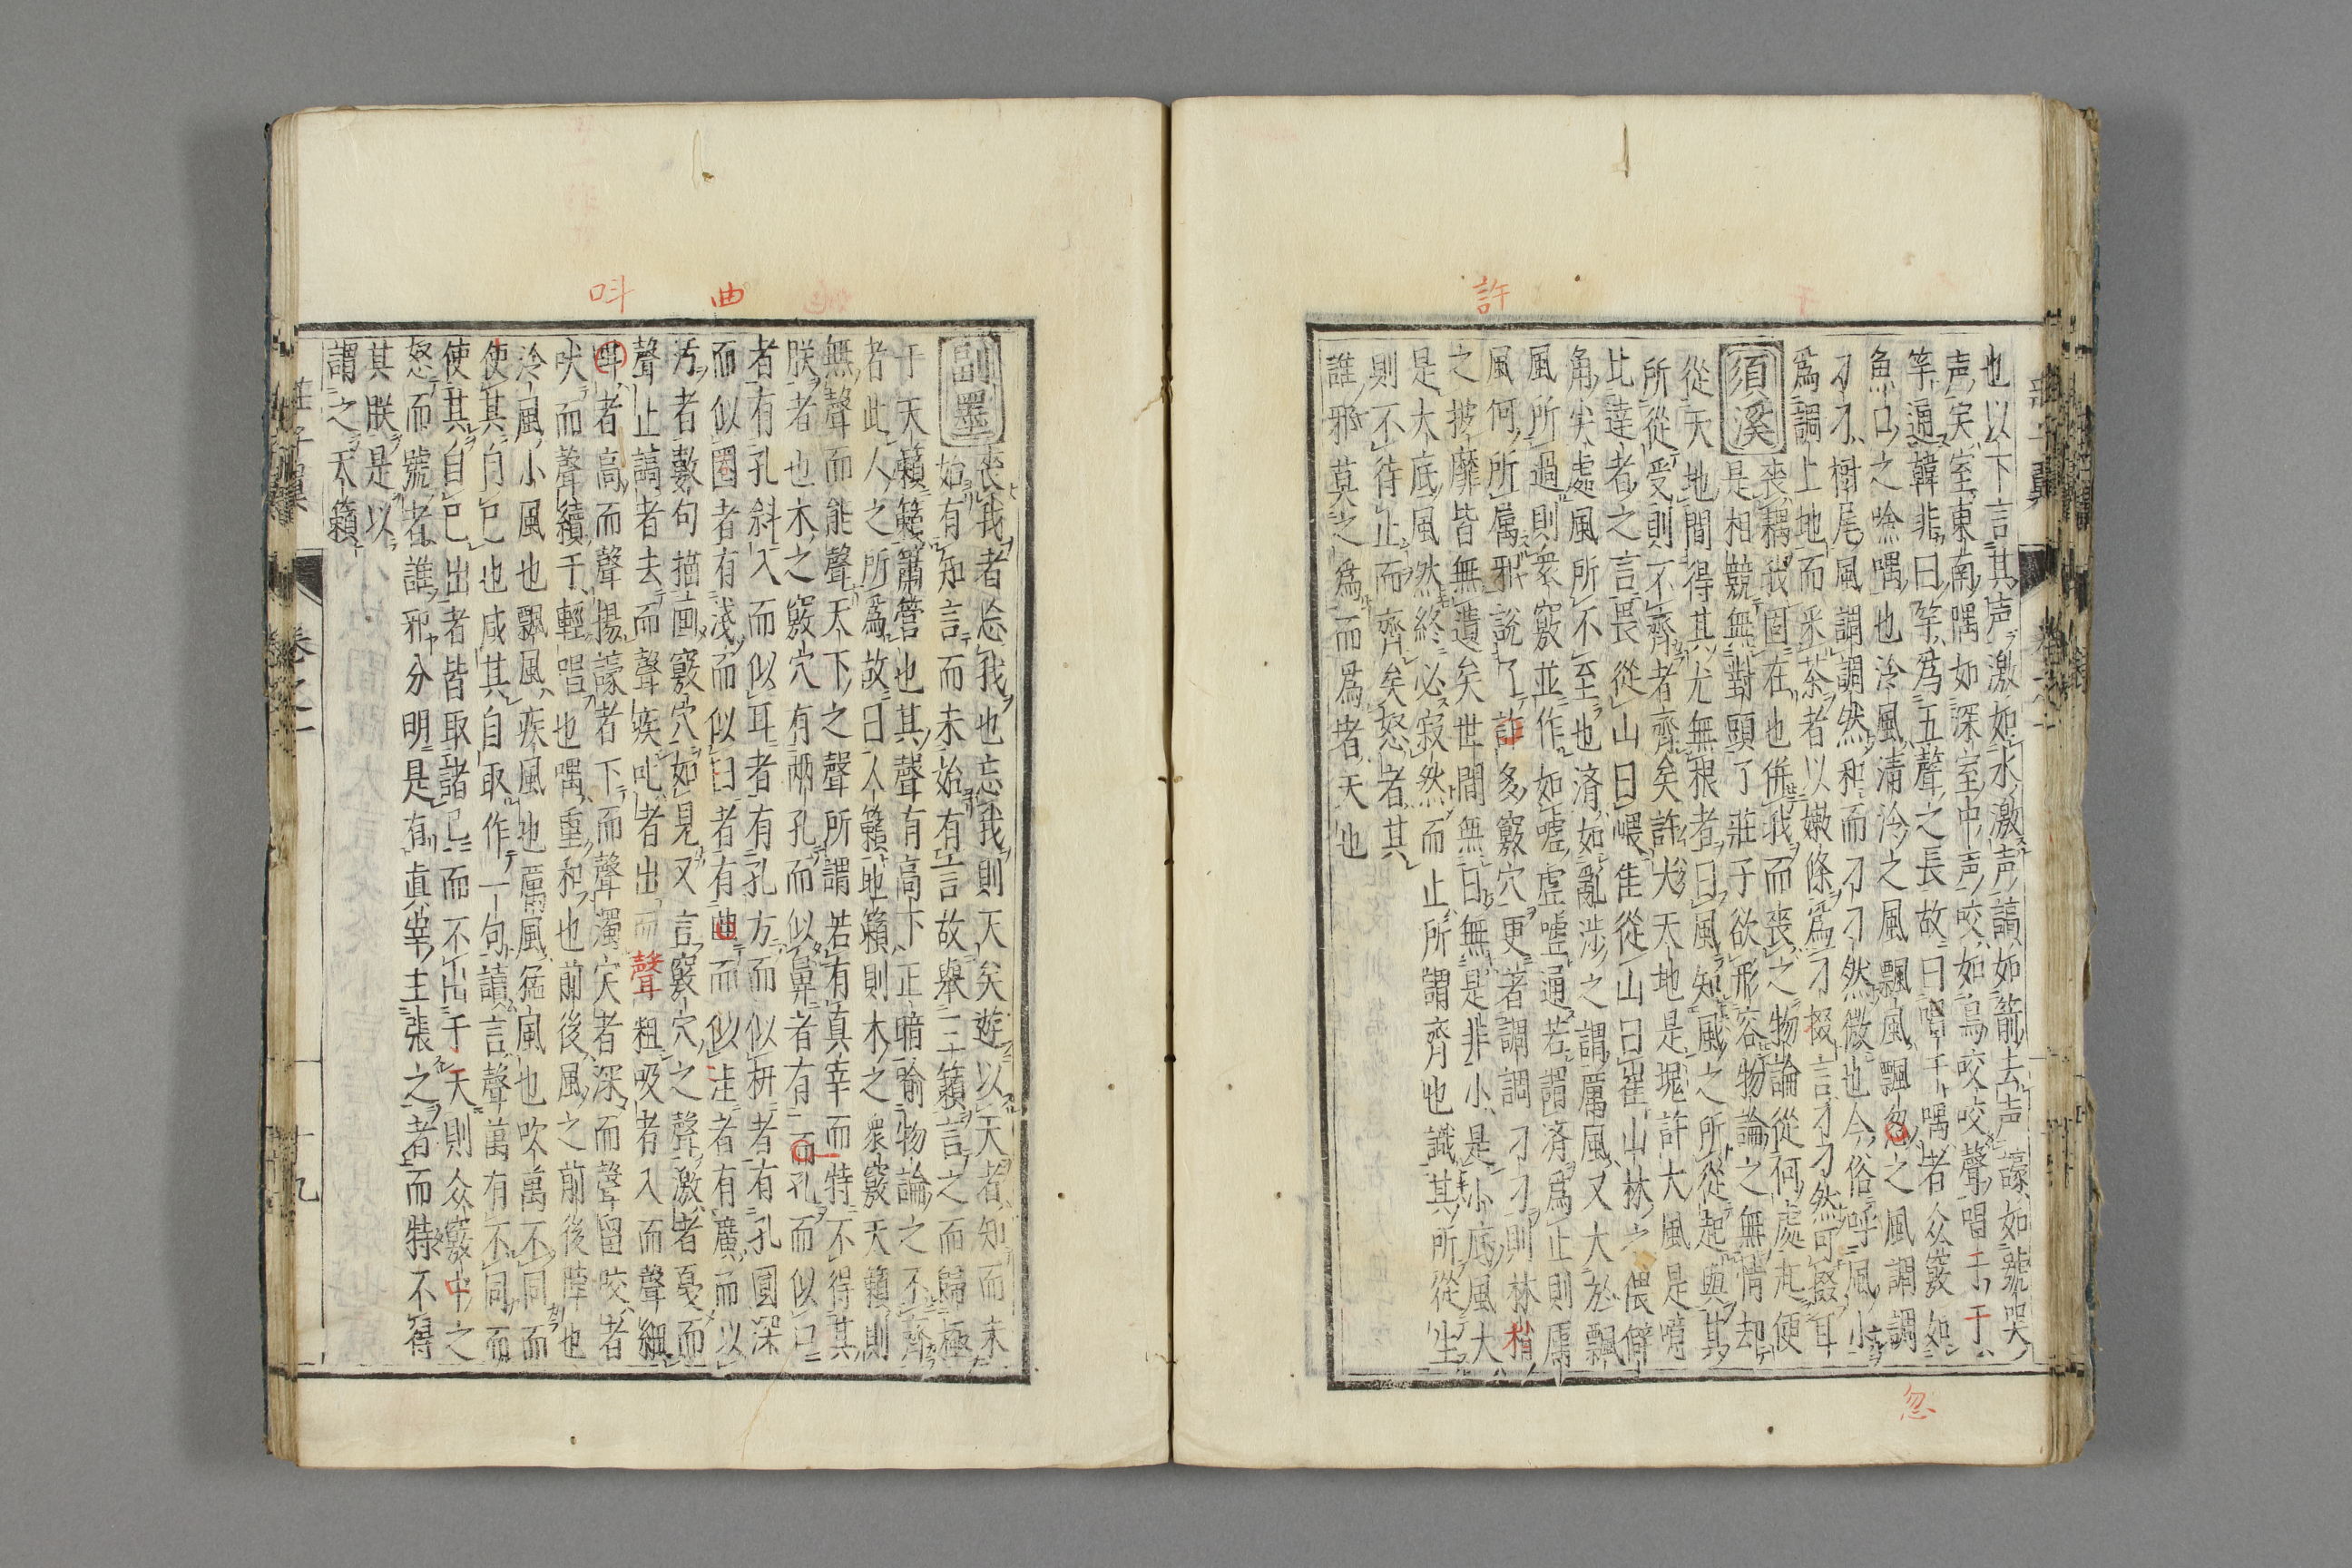 許
也以下言其声激如水激声謞如箭去声譹如號哭
声宎室東南隅如深室中声咬如鳥咬咬聲唱于于
竽通韓非曰竽爲五聲之長故曰唱于喁者众竅如
魚口之噞喁也泠風清泠之風飄風飄忽之風調調
刁刁樹尾風調調然和而刁刁然微也今俗呼風小
爲調上地而釆茶者以嫩條爲刁掇言刁刁然可掇耳
須溪
喪耦我固在也併我而喪之物論從何處起便
是相競無對頭了莊子欲形容物論之無情却
從天地間得其尤無根者曰風知風之所從起與其
所從受則不齊者齊矣許大天地是塊許大風是噫
比逹者之言畏從山曰嵔隹從山曰崔山林之偎僻
角尖處風所不至也済如亂涉之謂厲風又大於飄
風所過則衆竅並作如嘘虚嘘通若謂済爲止則厲
風何所属邪說了許多竅穴更著調調刁刁則林梢
之披靡皆無遺矣世間無曰無是非小是小底風大
是大底風然終必寂然而止所謂齊也識其所從生
則不待止而齊矣怒者其
誰邪莫之爲而爲者天也
忽
莊子翼
卷之二
曲
呌
副墨
喪我者忘我也忘我則天矣遊以天者知而未
始有知言而未始有言故舉三籟言之而歸極
于天籟籟簫管也其聲有高下正暗喻物論之不齊
者此人之所爲故曰人籟地籟則木之衆竅天籟則
無聲而能聲天下之聲所謂若有真宰而特不得其
朕者也木之竅穴有兩孔而似鼻者有一孔而似口
者有孔斜入而似耳者有孔方而似枅者有孔圓深
而似圈者有淺而似臼者有曲而似洼者有廣而以
汚者數句描画竅穴如見又言竅穴之聲激者戞而
聲止謞者去而聲疾叱者出而聲粗吸者入而聲細
叫者高而聲揚譹者下而聲濁宎者深而聲留咬者
吠而聲續于輕唱也喁重和也前後風之前後陣也
泠風小風也飄風疾風也厲風猛風也吹萬不同而
使其自己也咸其自取作一句讀言聲萬有不同而
使其自己出者皆取諸己而不出于天則众竅中之
怒而號者誰邪分明是有真宰主張之者而特不得
其朕是以
謂之天籟
莊子翼
卷之二
十九